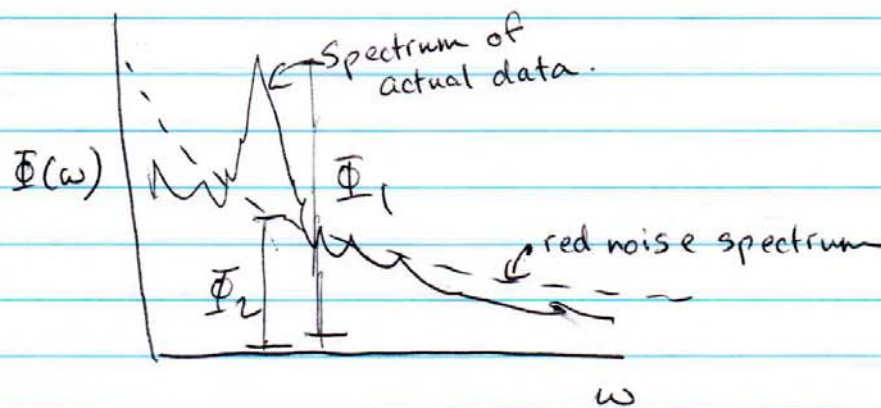 Spectrum of
actual data.
Φ(ω)
Φ₁
red noise spectrum
Φ₂
ω